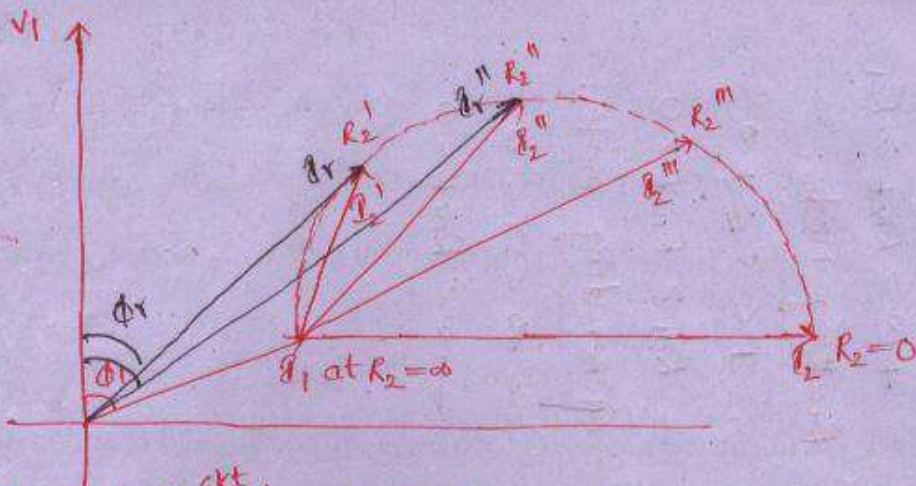 V1
R2''
Ir''
R2'''
R2'
Ir
I2''
I2'''
I2'
ϕr
ϕ1
I1 at R2=∞
I2 R2=0
ckt.